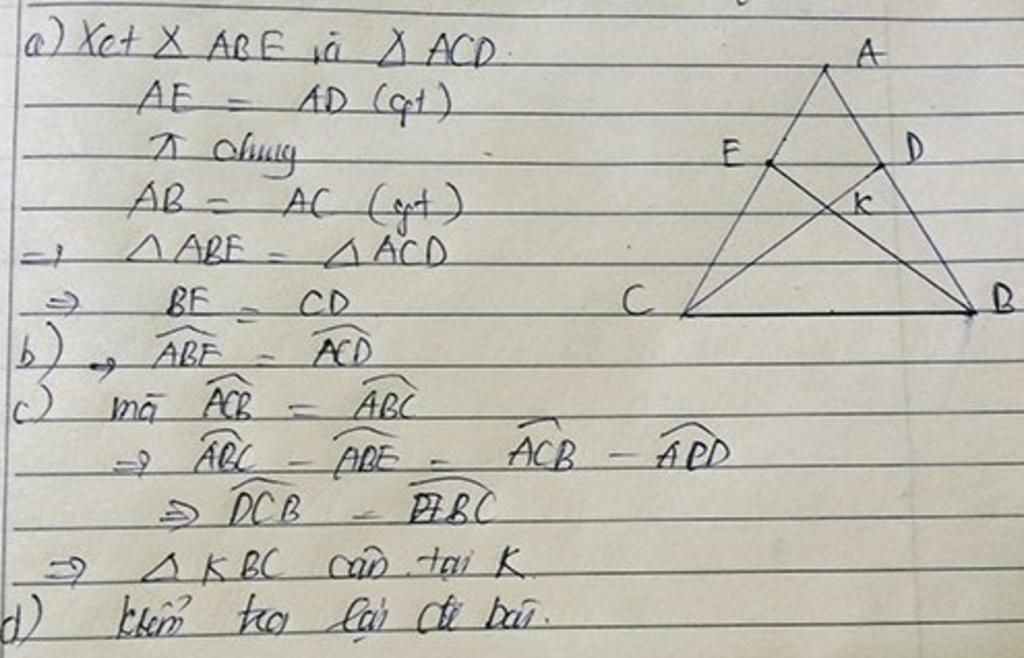 a) Xet X ABE và Δ ACD
AE = AD (gt)
chung
AB = AC (gt)
=> Δ ABE = Δ ACD
=> BE = CD
b) => ABE = ACD
c) mà ACB = ABC
=> ABC - ABE = ACB - ACD
=> DCB = EBC
=> Δ KBC cân tại K
d) kiểm tra lại đề bài.
A
E
D
K
C
B